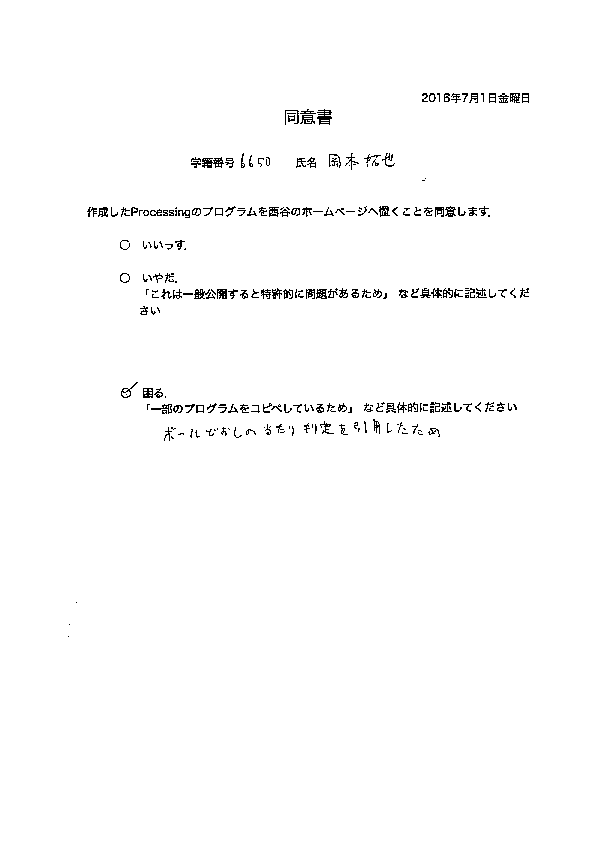 2016年7月1日金曜日
同意書
学籍番号 6650 氏名 岡本 拓也
作成したProcessingのプログラムを西谷のホームページへ置くことを同意します．
○ いいっす．
○ いやだ．
「これは一般公開すると特許的に問題があるため」 など具体的に記述してくだ
さい
○ 困る．
「一部のプログラムをコピペしているため」 など具体的に記述してください
ボールどおしの当たり判定を引用したため